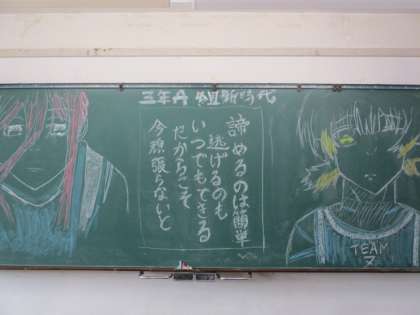 三年A組新時代
諦めるのは簡単
逃げるのも
いつでもできる
だからこそ
今頑張らないと
TEAM